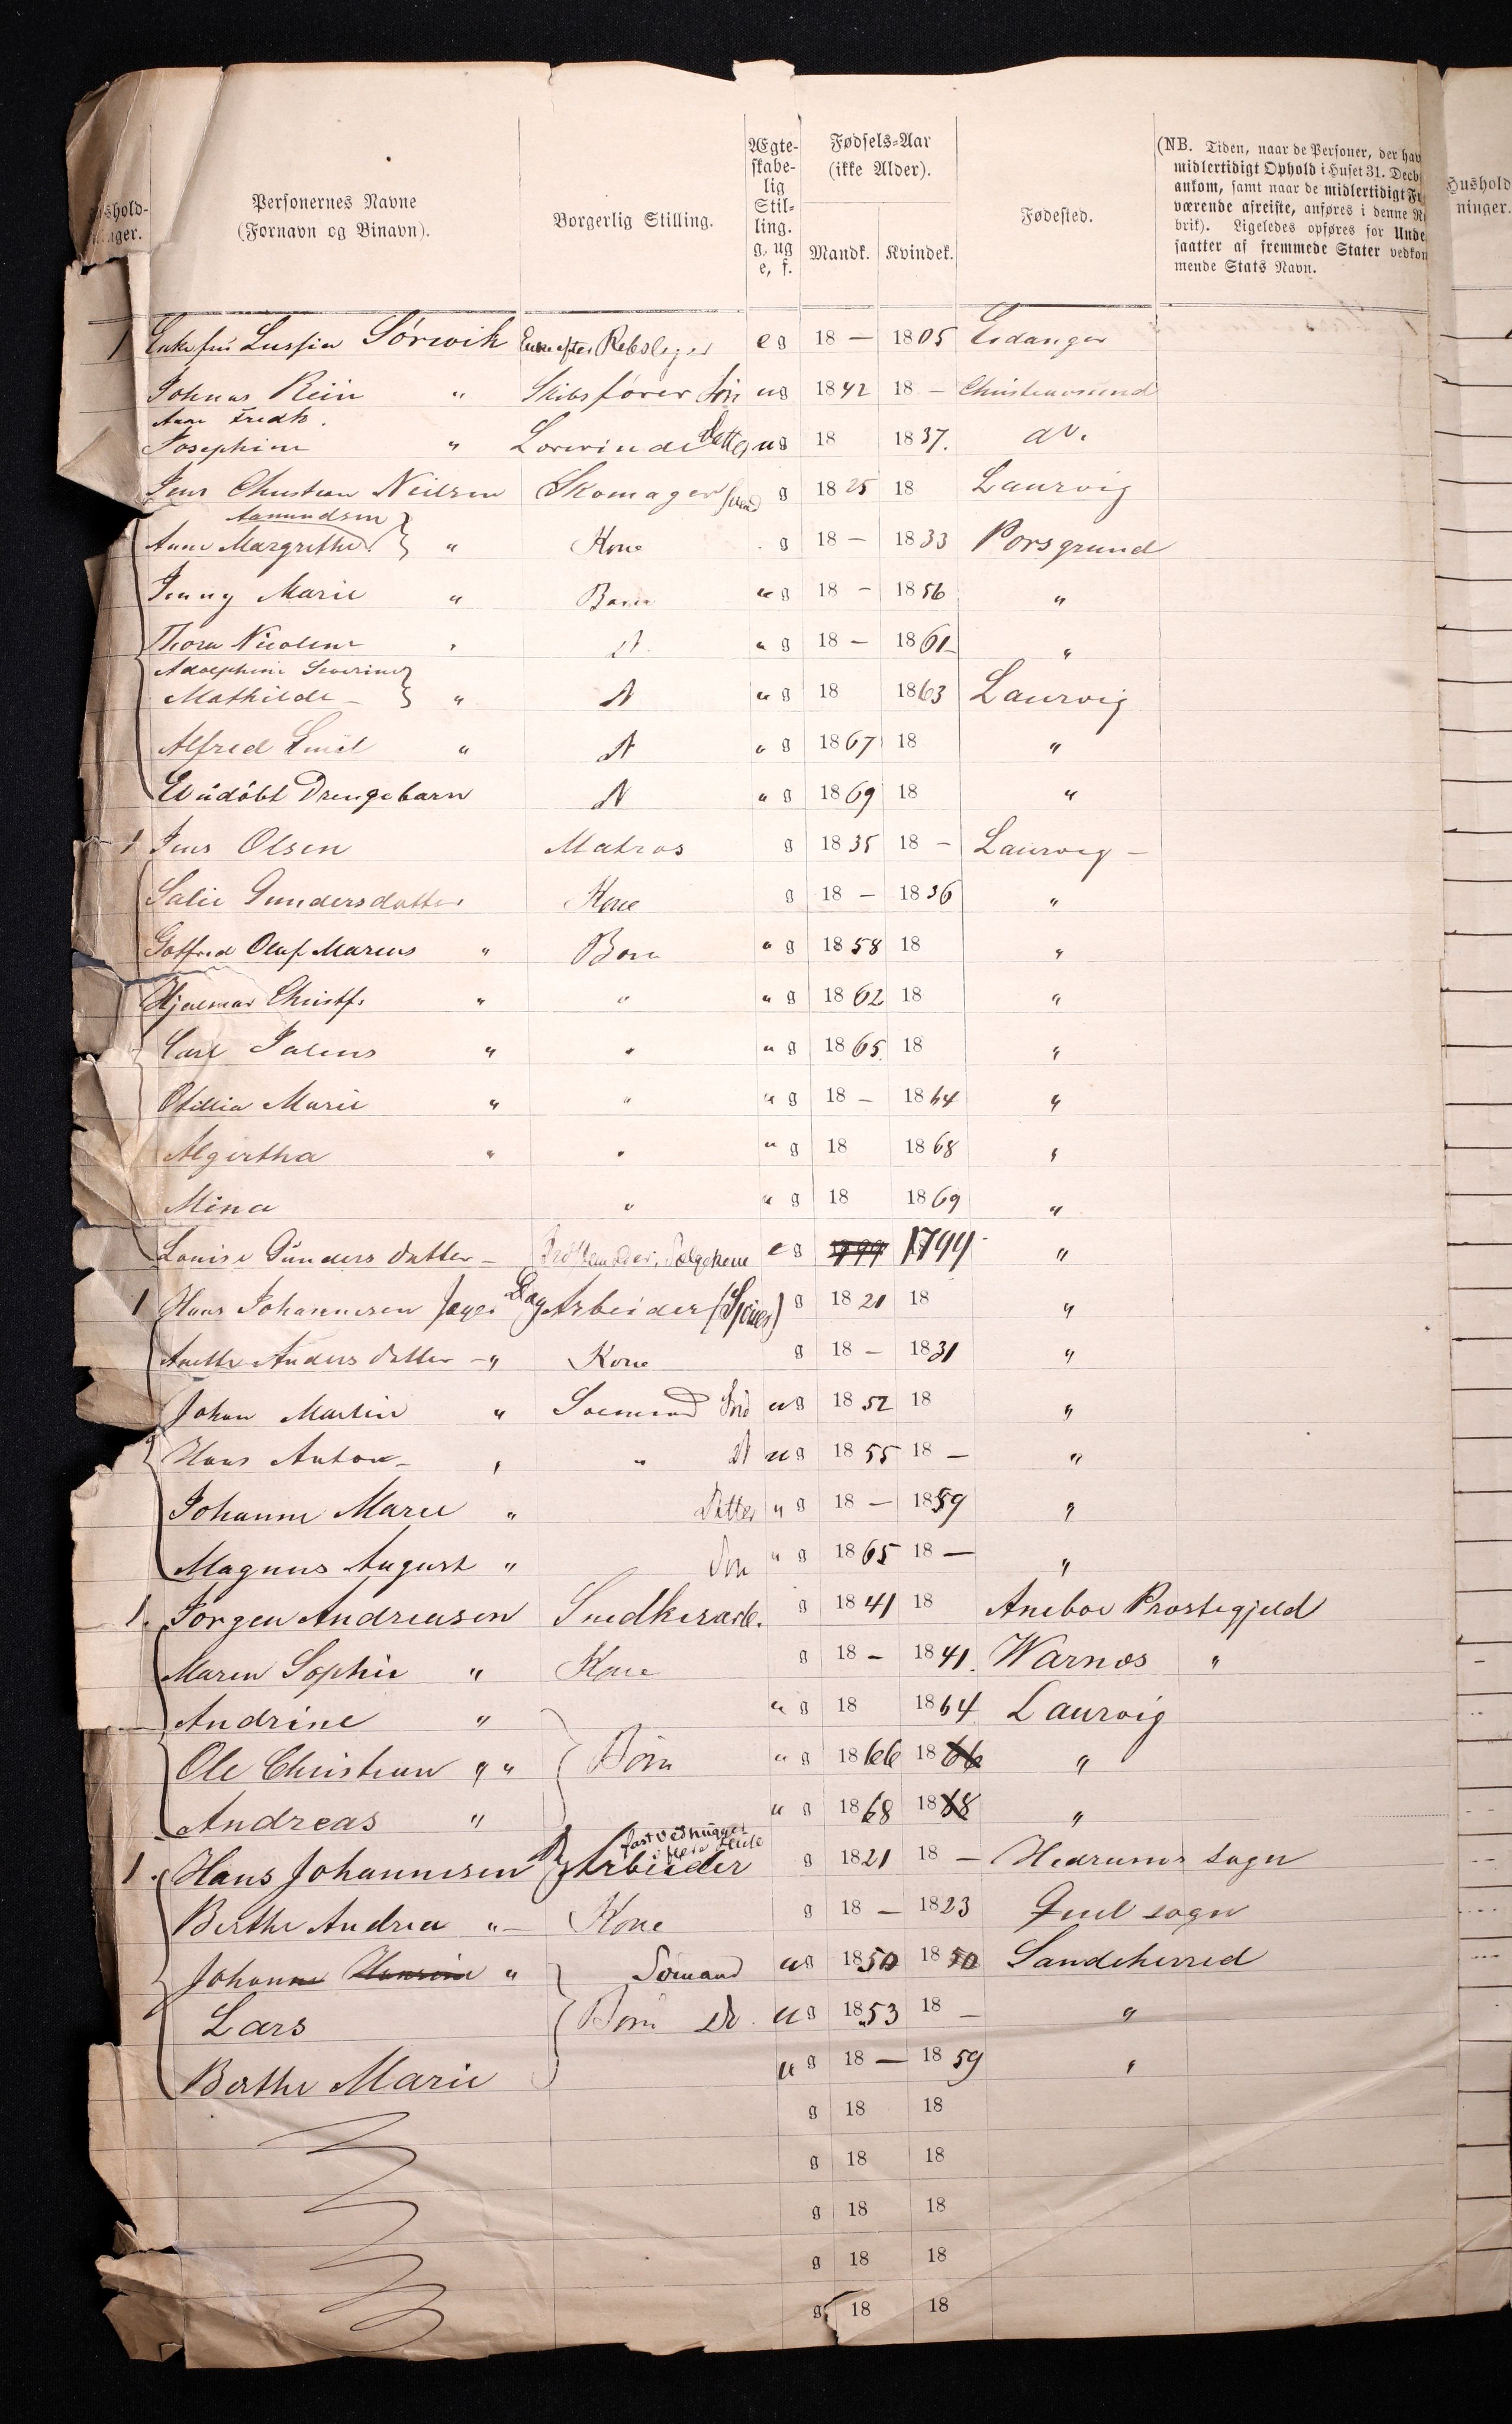 Hushold-
ninger.
Personernes Navne
(Fornavn og Binavn).
Borgerlig Stilling.
Ægte-
skabe-
lig
Stil-
ling.
g, ug
e, f.
Fødsels-Aar
(ikke Alder).
Mandk. Kvindek.
Fødested.
(NB. Tiden, naar de Personer, der hav
midlertidigt Ophold i Huset 31. Decb
ankom, samt naar de midlertidigt Fr
værende afreiste, anføres i denne R
brik). Ligeledes opføres for Unde
saatter af fremmede Stater vedkom
mende Stats Navn.
Hushold
ninger.
1 Enkefru Sørwik Enke efter Rebsleger e g 18 — 1805 Eidanger
Johnas Rein " Skibsfører Søn ug 1842 18 — Christiansund
Anne Fredk.
Josephine " Datter ug 18 1837. do.
Jens Christian Neilsen Skomagersvend g 1825 18 Laurvig
Aamundsen
Anne Margrethe " Kone g 18 — 1833 Porsgrund
Jenny Marie " Barn u g 18 — 1856 "
Thora Nicoline " d u g 18 — 1861 "
Adolphine Severine
Mathilde — " d u g 18 1863 Laurvig
Alfred Emil " d u g 1867 18 "
Et udöbt Drengebarn d u g 1869 18 "
1 Jens Olsen Matros g 1835 18 — Laurvig —
Gundersdatter Kone g 18 — 1836 "
Gotfred Oluf Marius " Born u g 1858 18 "
Hjalmar Christf. " " u g 1862 18 "
Carl Julius " " u g 1865 18 "
Otillia Marie " " u g 18 — 1864 "
Algertha " " u g 18 1868 "
Mina " u g 18 1869 "
Louise Gunders datter — e g 1799 1799 "
1 Hans Johannesen Jager Dag Arbeider g 1821 18 "
Anette Anders datter — " Kone g 18 — 1831 "
Johan Martin " Søemand Søn ug 1852 18 "
Hans Anton — " " d ug 1855 18 — "
Johanne Marie " Datter u g 18 — 1859 "
Magnus August " Søn u g 1865 18 — "
1. Jorgen Andreasen Snedkerarb. g 1841 18 Aneboe Prostegjeld
Maren Sophie " Kone g 18 — 1841. Warnos "
Andrine " u g 18 1864 Laurvig
Ole Christian " " Børn u g 1866 1866 "
Andreas " u g 1868 1868 "
fast vedhugger
1. Hans Johannesen Dg Arbeider g 1821 18 — Hedrums Sogn
Berthe Andrea " — Kone g 18 — 1823 sogn
Johanne Hansine " Sømand ug 1850 1850 Sandeherred
Lars Børn do. u g 1853 18 — "
Berthe Marie u g 18 — 1859 "
g 18 18
g 18 18
g 18 18
g 18 18
g 18 18